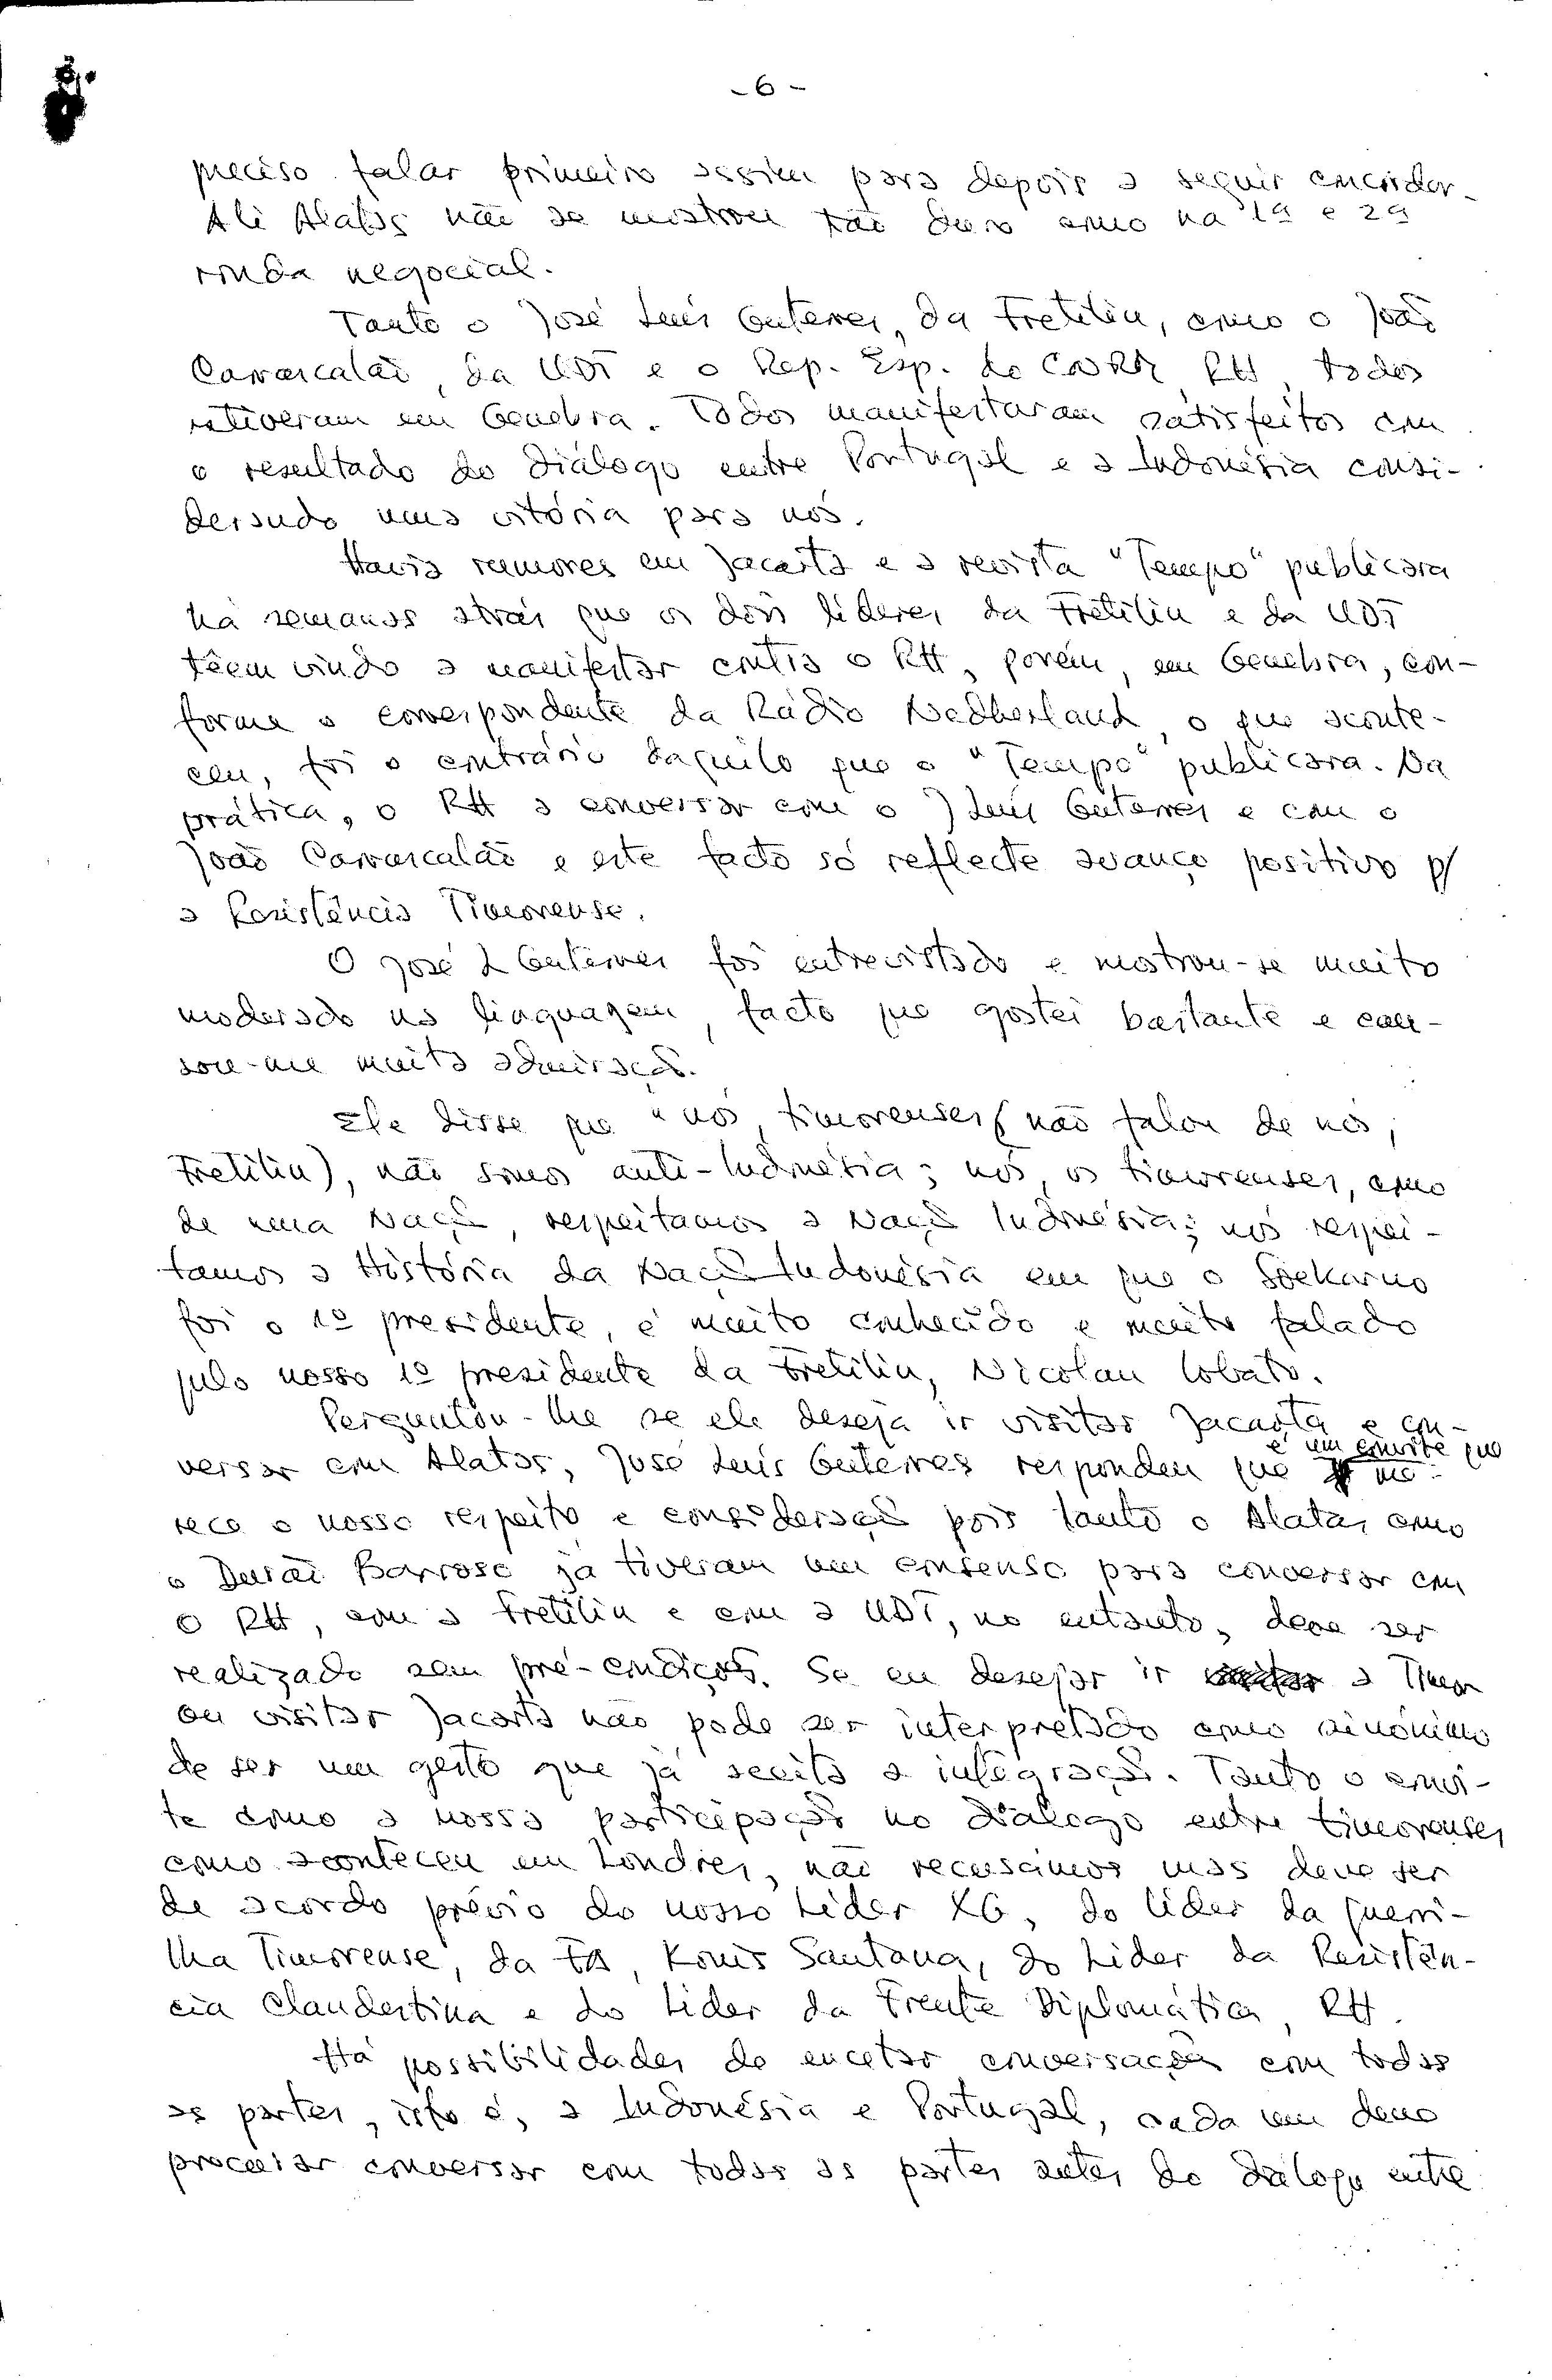 - 6 -
preciso falar primeiro assim para depois a seguir
Ali Alatas não se mostrou tão duro como na 1ª e 2ª
ronda negocial.
Tanto o José Luís Guterres, da Fretilin, como o João
Carrascalão, da UDT e o Rep. Esp. do CNRM, RH, todos
estiveram em Genebra. Todos manifestaram satisfeitos com
o resultado do diálogo entre Portugal e a Indonésia consi-
derando uma vitória para nós.
Havia rumores em Jacarta e a revista "Tempo" publicara
há semanas atrás que os dois líderes da Fretilin e da UDT
têem vindo a manifestar contra o RH, porém, em Genebra, con-
forme o correspondente da Rádio Nedherland, o que aconte-
ceu, foi o contrário daquilo que a "Tempo" publicara. Na
prática, o RH a conversar com o J Luís Guterres e com o
João Carrascalão e este facto só reflecte avanço positivo p/
a Resistência Timorense.
O José L Guterres foi entrevistado e mostrou-se muito
moderado na linguagem, facto que gostei bastante e cau-
sou-me muita admiração.
Ele disse que "nós, timorenses (não falou de nós,
Fretilin), não somos anti-Indonésia; nós, os timorenses, como
de uma Nação, respeitamos a Nação Indonésia; nós respei-
tamos a História da Nação Indonésia em que o Soekarno
foi o 1º presidente, é muito conhecido e muito falado
pelo nosso 1º presidente da Fretilin, Nicolau Lobato.
Perguntou-lhe se ele deseja ir visitar Jacarta e con-
versar com Alatas, José Luís Guterres respondeu que é um convite que me-
rece o nosso respeito e consideração pois tanto o Alatas como
o Durão Barroso já tiveram um consenso para conversar com
o RH, com a Fretilin e com a UDT, no entanto, deve ser
realizado sem pré-condições. Se eu desejar ir a Timor
ou visitar Jacarta não pode ser interpretado como sinónimo
de ser um gesto que já aceita a integração. Tanto o convi-
te como a nossa participação no diálogo entre timorenses
como aconteceu em Londres, não recusamos mas deve ser
de acordo prévio do nosso Líder XG, do líder da guerri-
lha Timorense, da FA, Konis Santana, do Líder da Resistên-
cia Clandestina e do Líder da Frente Diplomática, RH.
Há possibilidades de encetar conversações com todas
as partes, isto é, a Indonésia e Portugal, cada um deve
procurar conversar com todas as partes antes do diálogo entre